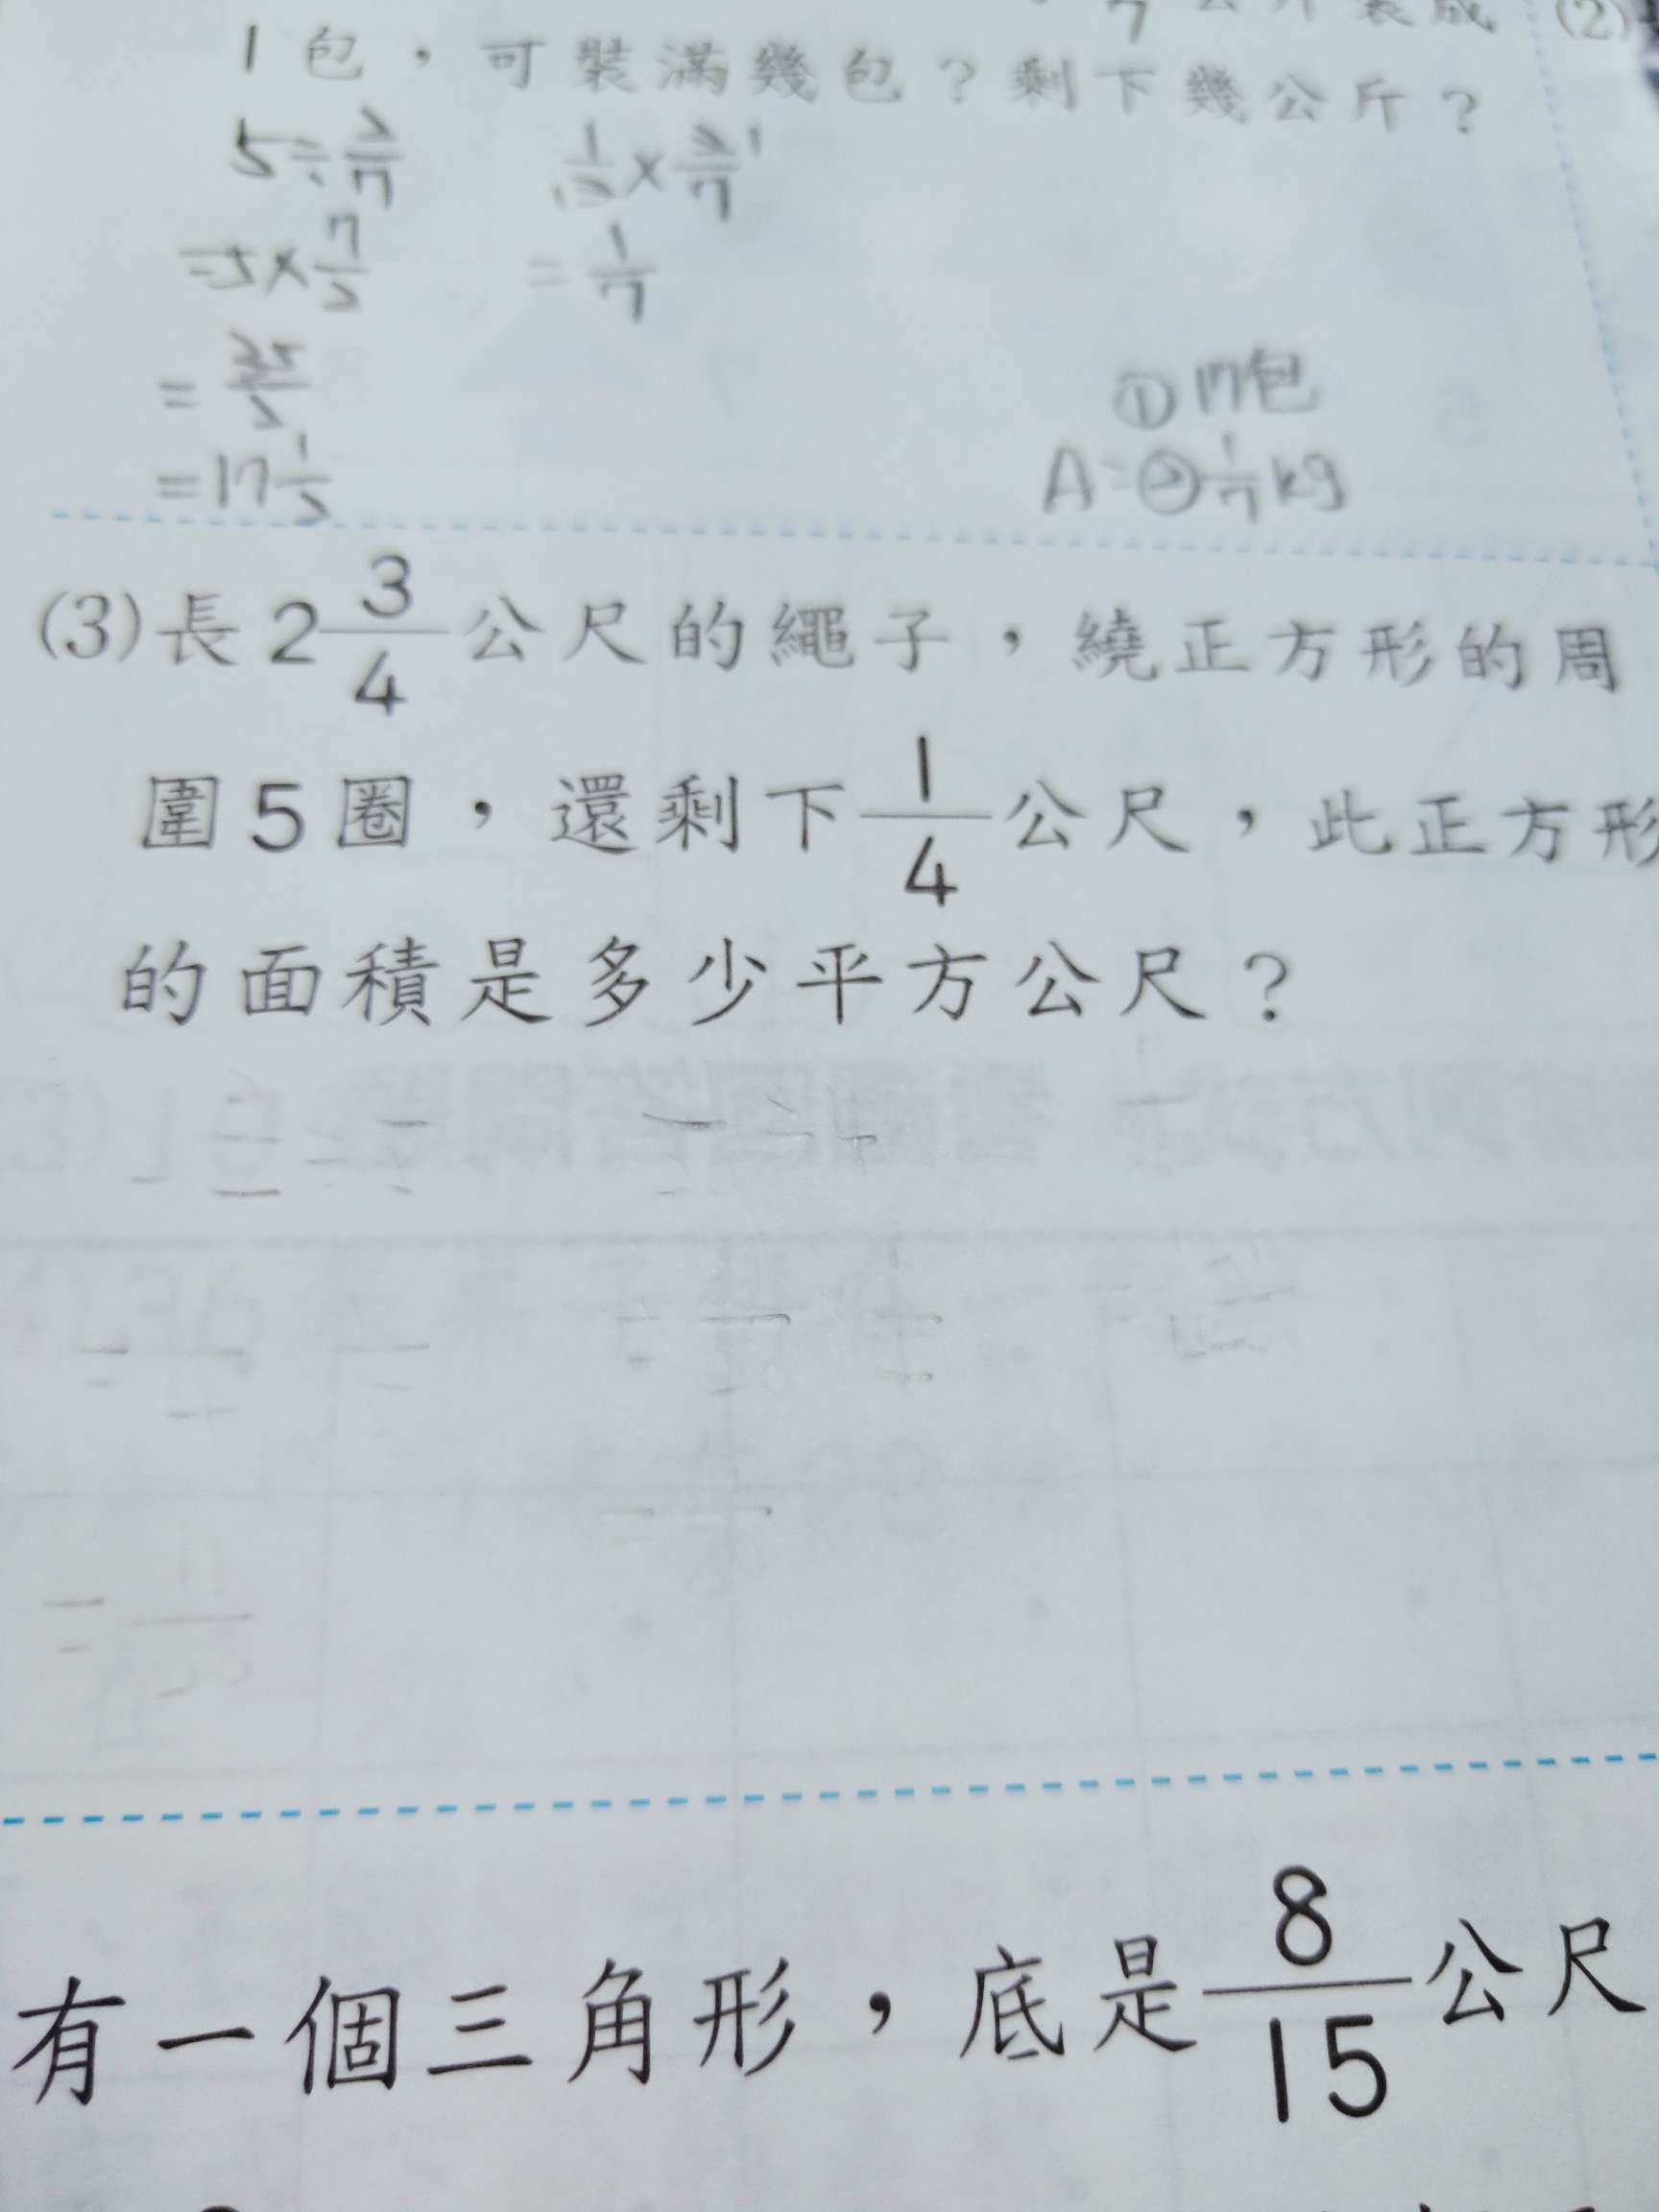 7 公斤裝成 (2)
1包，可裝滿幾包？剩下幾公斤？
5÷2/7 1/2×2/7 1
=5×7/2 =1/7
=35/2 ①17包
=17 1/2 A=②1/7kg
(3)長2 3/4公尺的繩子，繞正方形的周
圍5圈，還剩下1/4公尺，此正方形
的面積是多少平方公尺？
有一個三角形，底是8/15公尺